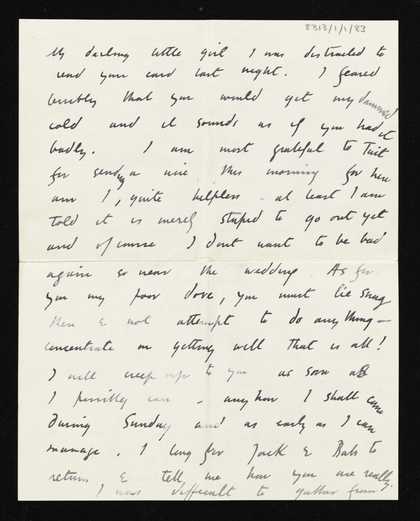 8313/1/1/83
My darling little girl I was distracted to
read your card last night. I feared
terribly that you would get my damned
cold and it sounds as if you had it
badly. I am most grateful to Tait
for sending a wire this morning for here
am I, quite helpless - at least I am
told it is merely stupid to go out yet
and of course I dont want to be bad
again so near the wedding. As for
you my poor dove, you must lie snug
then & not attempt to do anything -
concentrate on getting well that is all!
I will creep up to you as soon as
I possibly can - anyhow I shall come
during Sunday and as early as I can
manage. I long for Jack & Babs to
return & tell me how you are really.
I was difficult to gather from